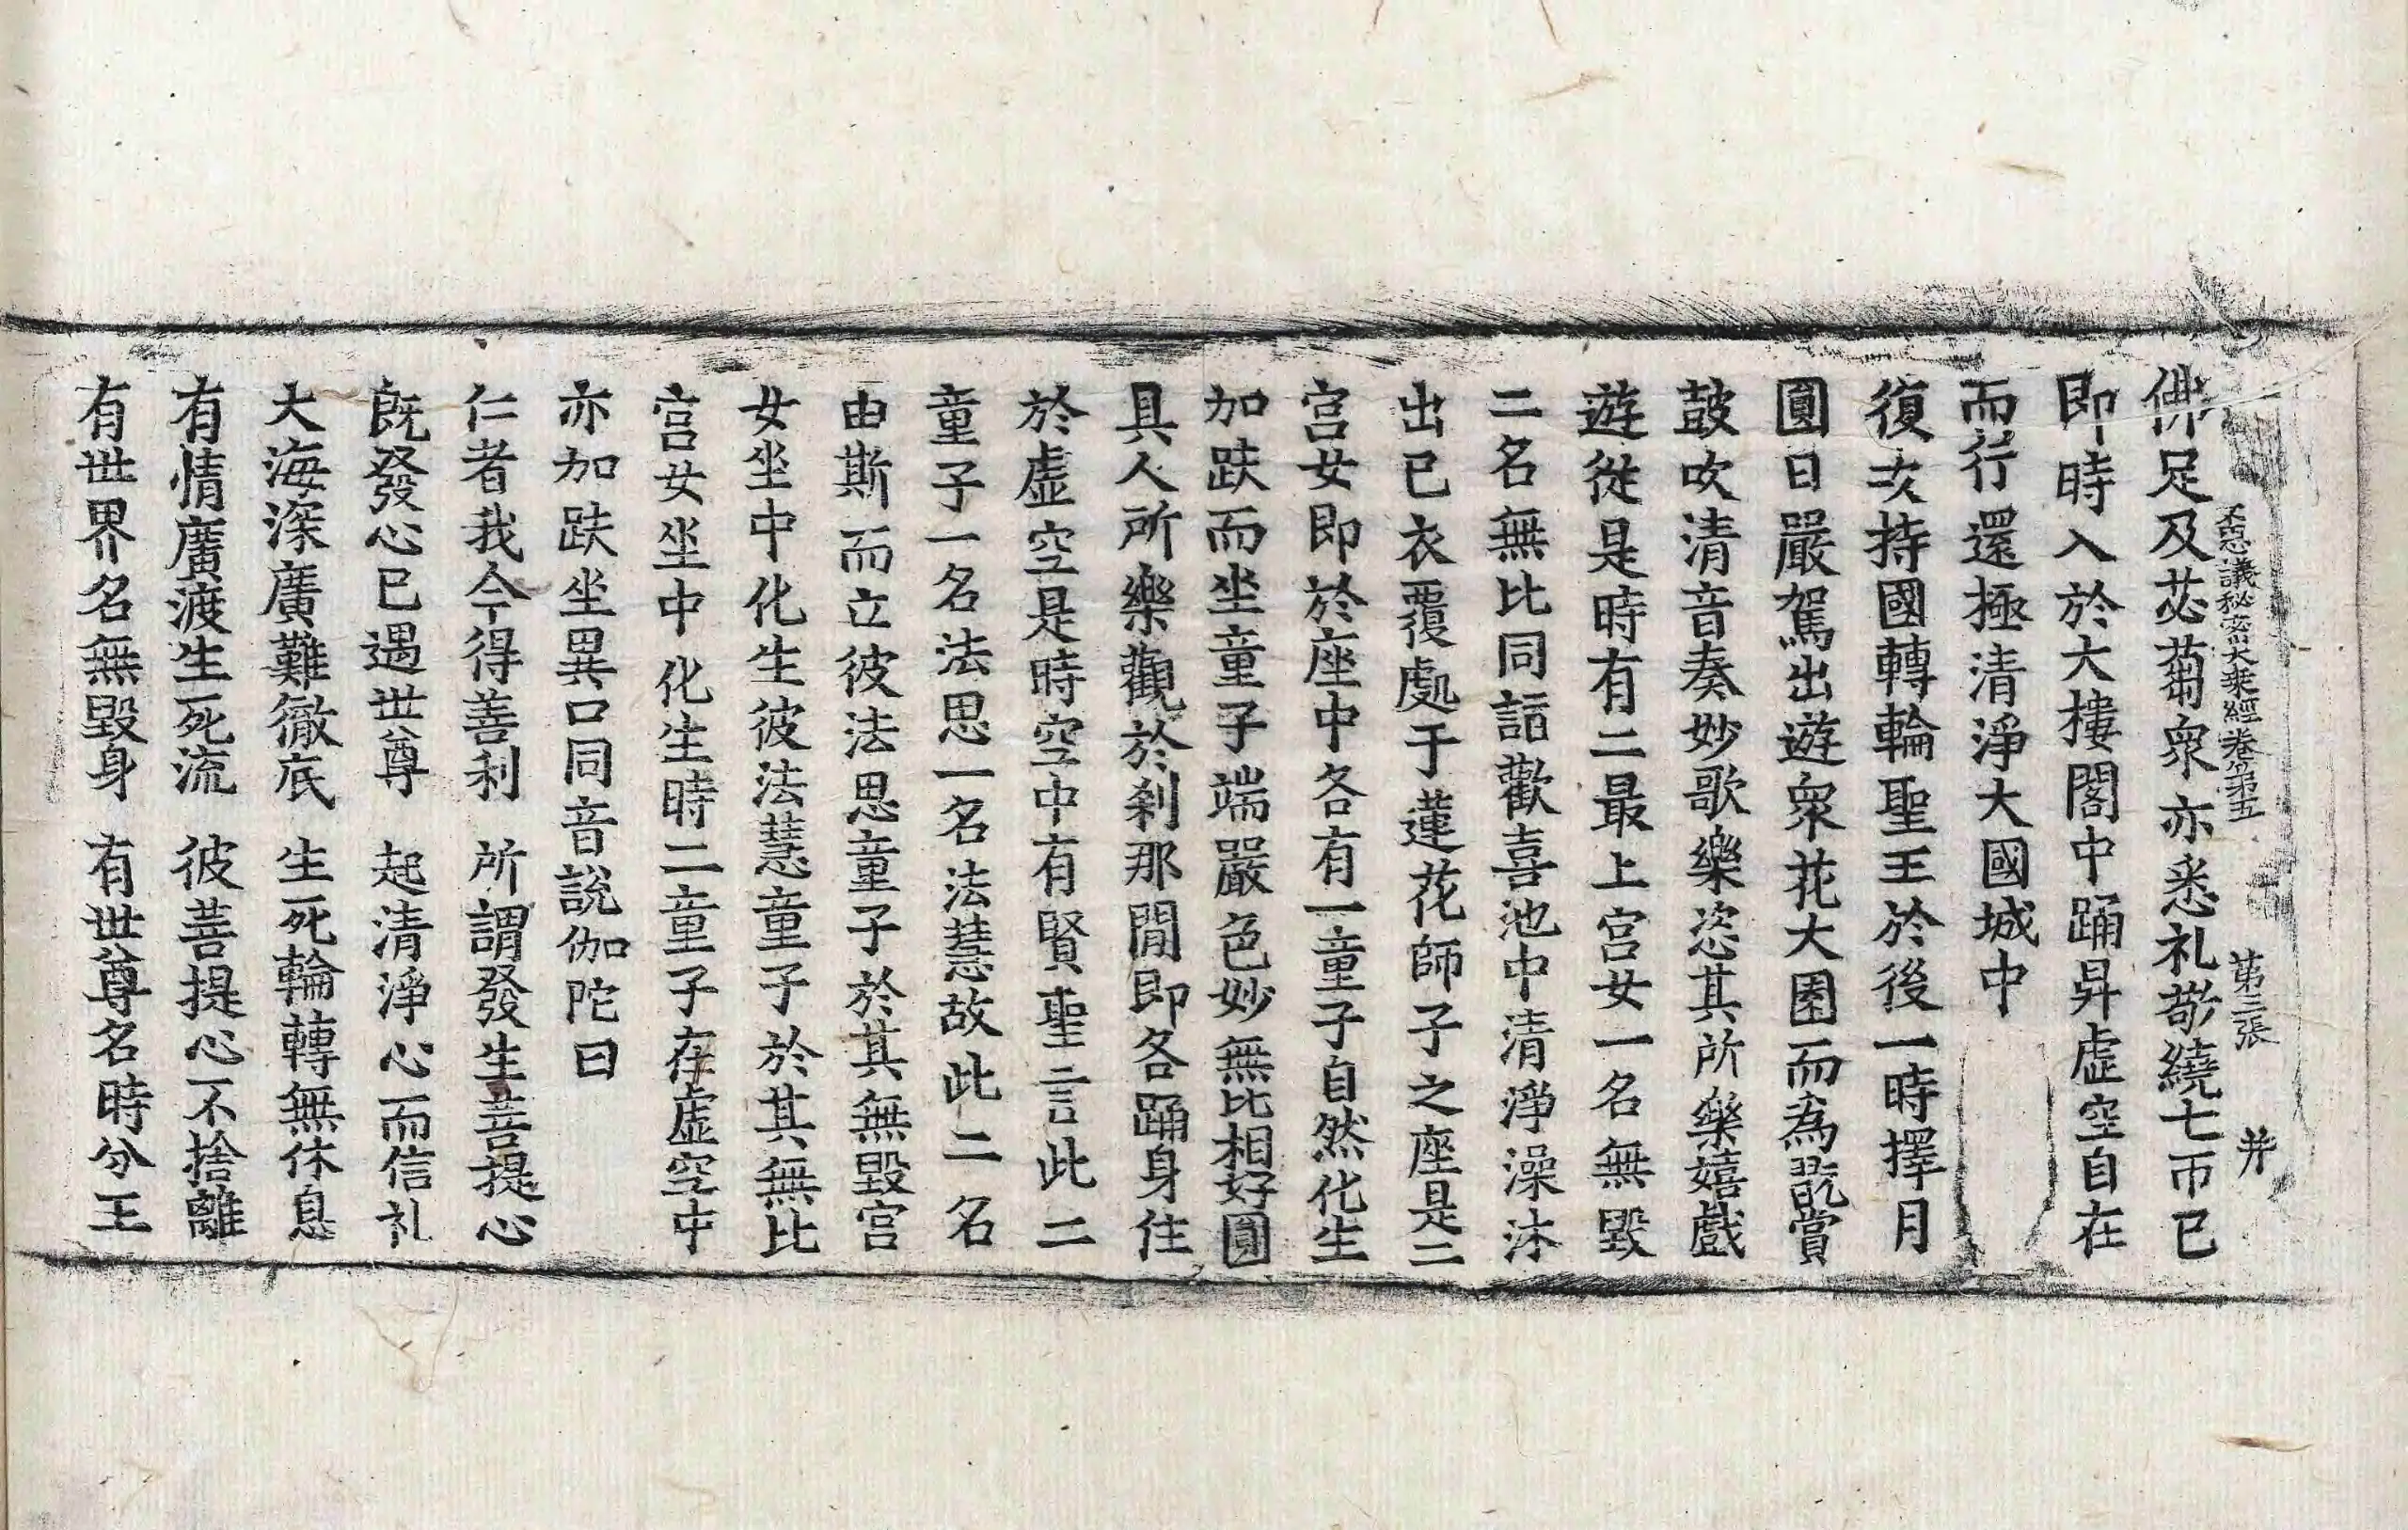 佛足及苾蒭衆亦悉礼敬繞七帀已
不思議秘密大乘經卷第五 第三張 并
即時入於大樓閣中踊昇虛空自在
而行還極清淨大國城中
復次持國轉輪聖王於後一時擇月
圓日嚴駕出遊衆花大園而為翫賞
鼓吹清音奏妙歌樂恣其所樂嬉戲
遊從是時有二最上宮女一名無毀
二名無比同詣歡喜池中清淨澡沐
出已衣覆處于蓮花師子之座是二
宮女即於座中各有一童子自然化生
加趺而坐童子端嚴色妙無比相好圓
具人所樂觀於刹那間即各踊身住
於虛空是時空中有賢聖言此二
童子一名法思一名法慧故此二名
由斯而立彼法思童子於其無毀宮
女坐中化生彼法慧童子於其無比
宮女坐中化生時二童子在虛空中
亦加趺坐異口同音說伽陀曰
仁者我今得善利 所謂發生菩提心
旣發心已遇世尊 起清淨心而信礼
大海深廣難徹底 生死輪轉無休息
有情廣渡生死流 彼菩提心不捨離
有世界名無毀身 有世尊名時分王